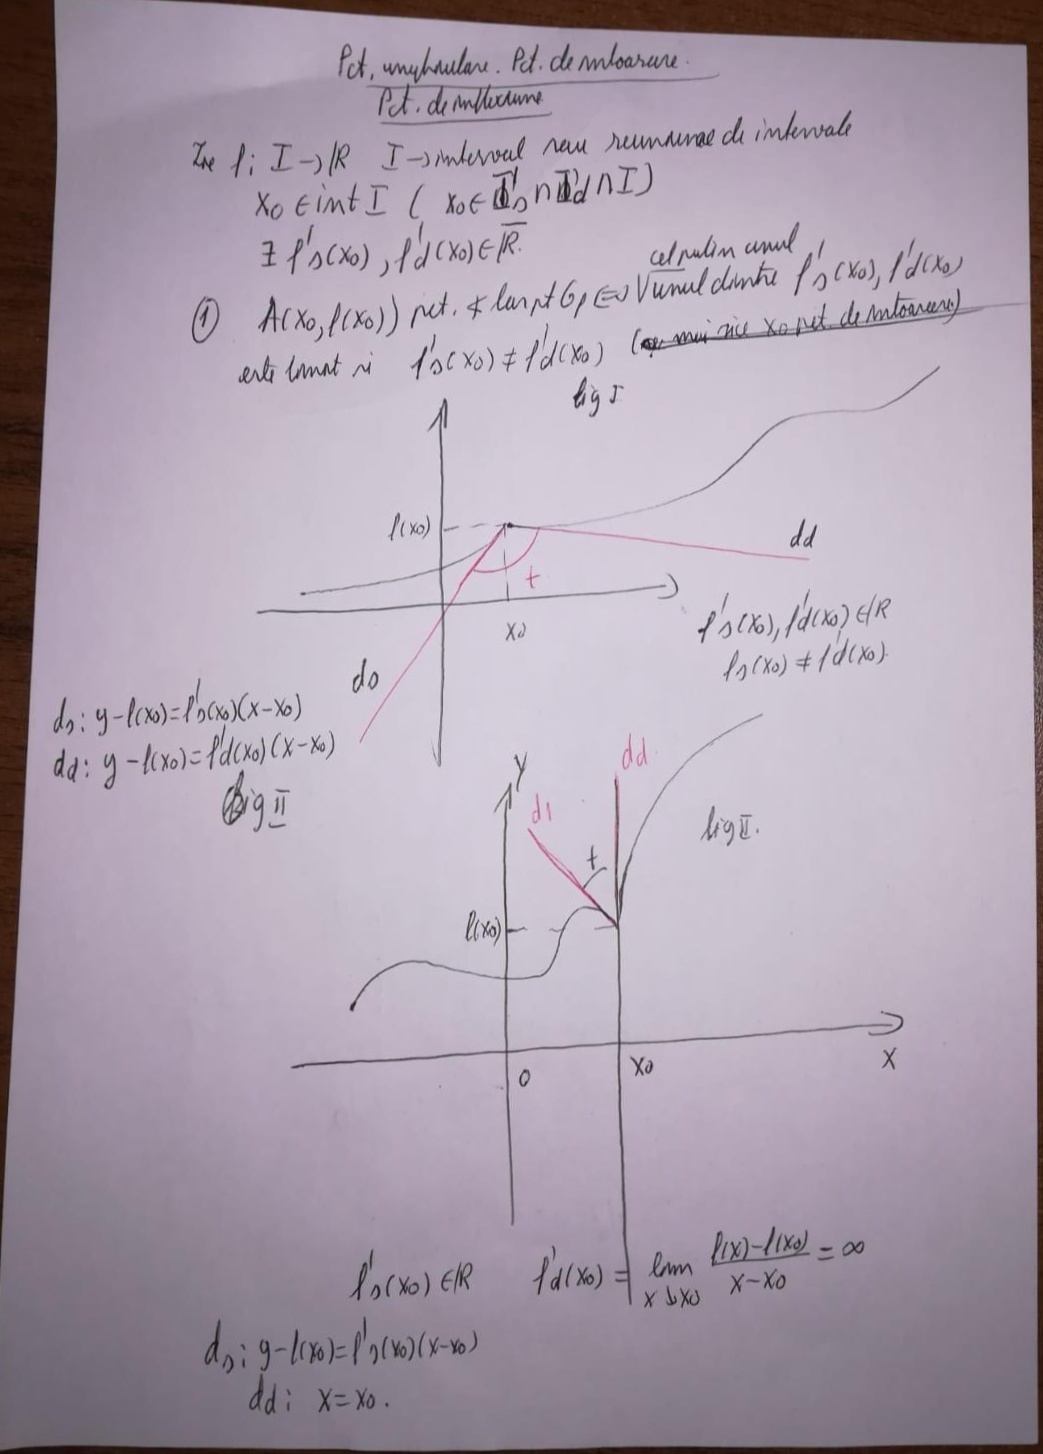 Pct. unghiulare. Pct. de intoarcere.
Pct. de inflexiune
Fie f: I→ℝ I→interval sau reuniune de intervale
x0 ∈ int I ( x0 ∈ I's ∩ I'd ∩ I)
∃ f's(x0), f'd(x0) ∈ ℝ̅.
cel putin unul
① A(x0, f(x0)) pct. ∢ lar pt Gf ⇔ unul dintre f's(x0), f'd(x0)
este finit si f's(x0) ≠ f'd(x0) ( mai zice x0 pct. de intoarcere)
fig I
f(x0)
dd
t
x0
f's(x0), f'd(x0) ∈ ℝ
fs(x0) ≠ f'd(x0).
ds
ds: y-f(x0)=f's(x0)(x-x0)
dd: y-f(x0)=f'd(x0)(x-x0)
fig II
y
dd
ds
fig II.
t
f(x0)
0
x0
x
f's(x0) ∈ ℝ f'd(x0) = lim x↓x0 (f(x)-f(x0))/(x-x0) = ∞
ds: y-f(x0)=f's(x0)(x-x0)
dd: x=x0.